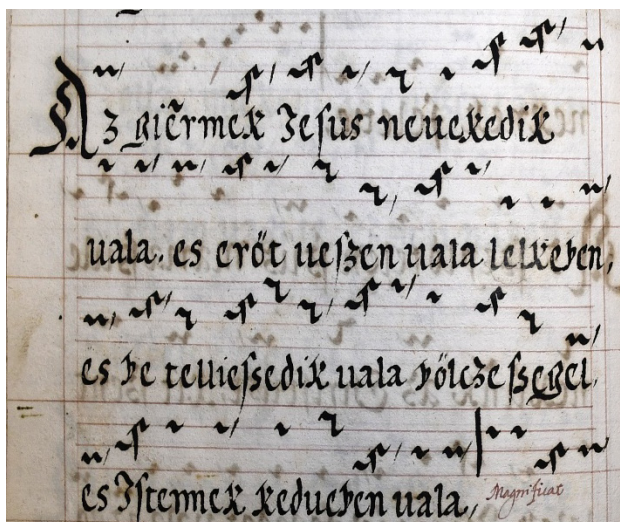 Az giermek Jesus neuekedik
uala. es erőt ueſzen uala lelkeben,
es be tellieſsedik uala bölcze ſsegel,
es Iſtennek keduében uala,
Magnificat